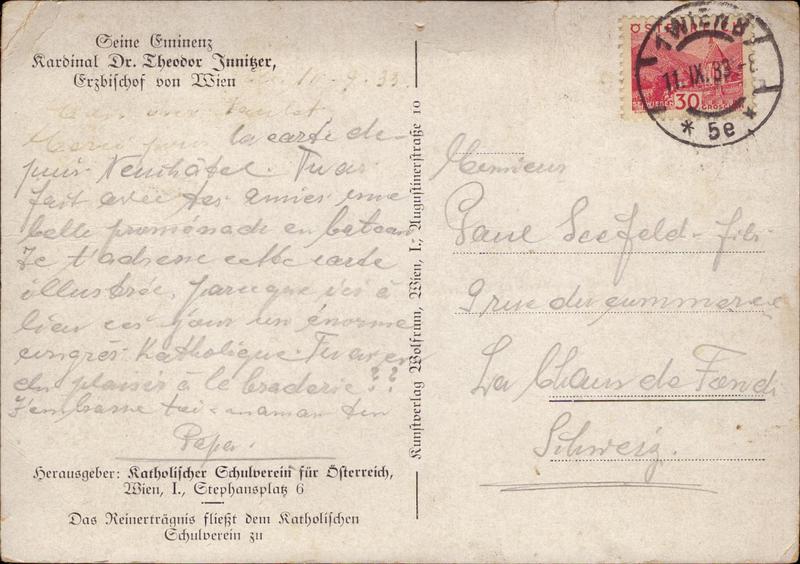 Seine Eminenz
Kardinal Dr. Theodor Innitzer,
Erzbischof von Wien
10-9.33
Mon
Merci pour la carte de-
puis Neuchâtel. Tu as
fait avec tes amies une
belle promenade en bateau
Je t'adresse cette carte
illustrée, parceque ici à
lieu ces jour un énorme
congrès Katholique. Tu as eu
du plaisir à la braderie??
J'embrasse toi - maman ton
Papa.
Herausgeber: Katholischer Schulverein für Österreich,
Wien, I., Stephansplatz 6
Das Reinerträgnis fließt dem Katholischen
Schulverein zu
Kunstverlag Wolfrum, Wien, I., Augustinerstraße 10
ÖSTERREICH
30
GROSCHEN
1 WIEN 1
11.IX.33-8
* 5e *
Monsieur
Paul Seefeld-fils
9 rue du commerce
La Chaux de Fonds
Schweiz.